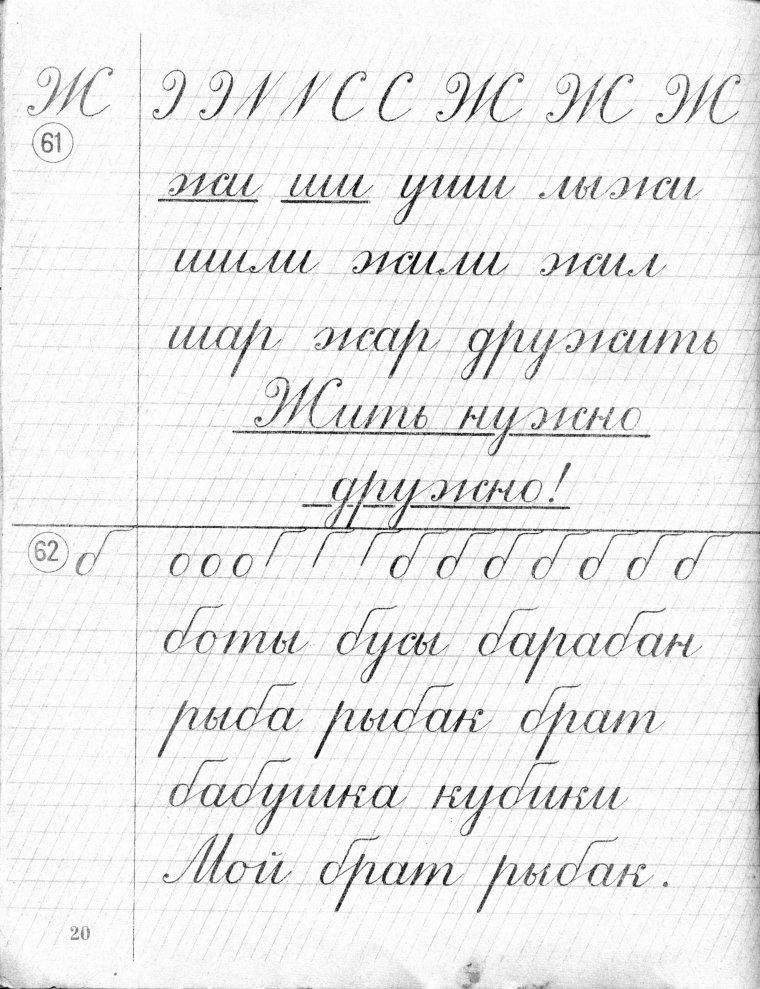 Ж Ж Ж Ж
61
жи ши уши лыжи
шили жили жил
шар жар дружить
Жить нужно
дружно!
62 б о о о б б б б б б б
боты бусы барабан
рыба рыбак брат
бабушка кубики
Мой брат рыбак.
20